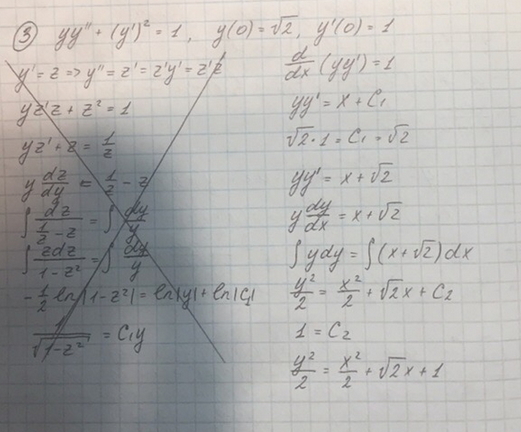 ③ yy'' + (y')² = 1, y(0) = √2, y'(0) = 1
y' = z => y'' = z' = z'y' = z'z
yz'z + z² = 1
yz' + z = 1/z
y dz/dy = 1/z - z
∫ dz/(1/z - z) = ∫ dy/y
∫ zdz/(1 - z²) = ∫ dy/y
-1/2 ln|1 - z²| = ln|y| + ln|C₁|
1/√(1 - z²) = C₁y
d/dx (yy') = 1
yy' = x + C₁
√2 · 1 = C₁ = √2
yy' = x + √2
y dy/dx = x + √2
∫ ydy = ∫ (x + √2) dx
y²/2 = x²/2 + √2x + C₂
1 = C₂
y²/2 = x²/2 + √2x + 1